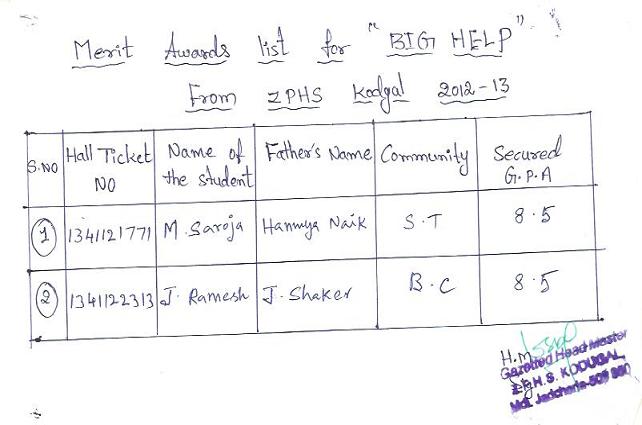 Merit Awards list for "BIG HELP"
From ZPHS Kodgal 2012-13
S.NO Hall Ticket NO Name of the student Father's Name Community Secured G.P.A
1 1341121771 M. Saroja Hannya Naik S.T 8.5
2 1341122313 J. Ramesh J. Shaker B.C 8.5
H.m
Gazetted Head Master
Z.P.H.S. KODUGAL
Mdl. Jadcherla-509